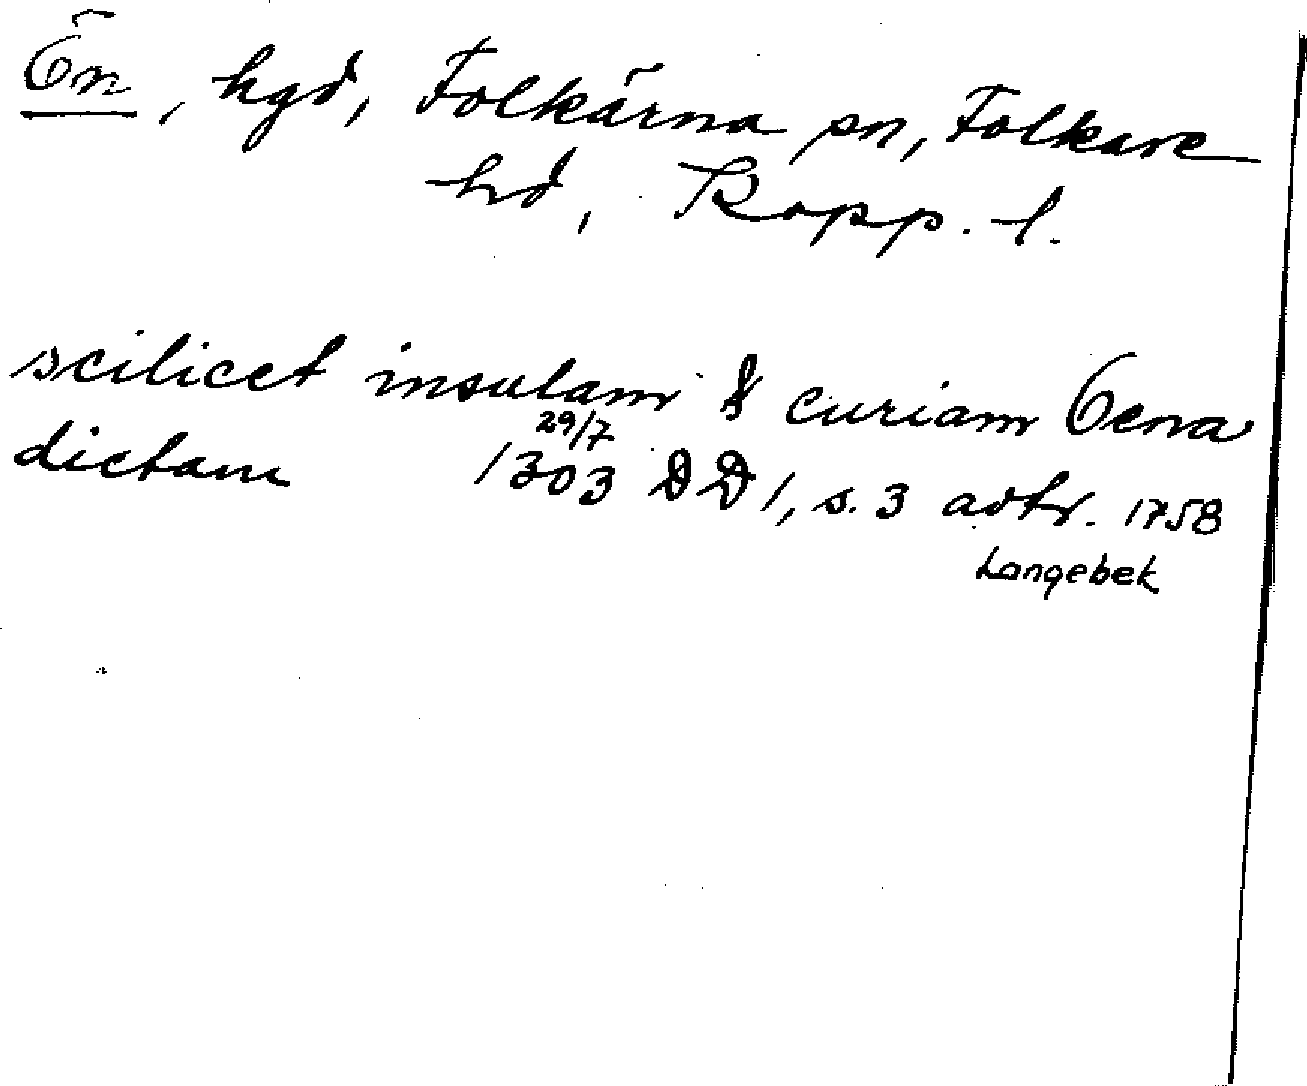 Ön, hgd, Folkärna sn, Folkare
hd, Kopp. l.
scilicet insulam & curiam Oena
29/7
dictam 1303 DD 1, s. 3 avtr. 1758
Langebek